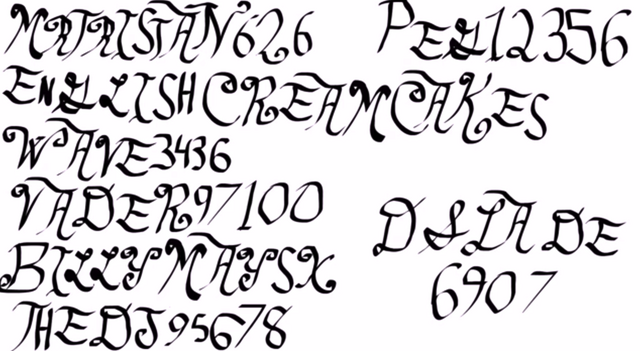 MRTRISTAN626
PEG12356
ENGLISHCREAMCAKES
WAVE3436
VADER97100
DSLADE
6907
BILLYMAYSX
THEDJ95678